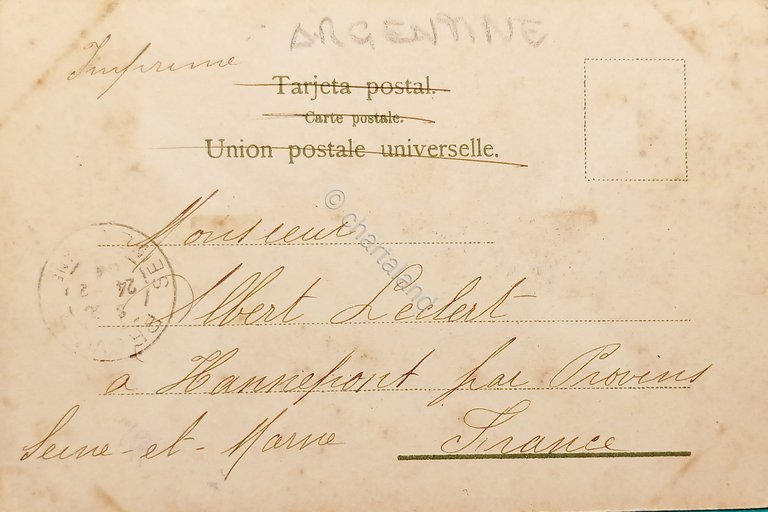 ARGENTINE
Imprimé
Tarjeta postal.
Carte postale.
Union postale universelle.
© chartaland
Monsieur
Albert Leclert
a Hannepont par Provins
Seine-et-Marne France